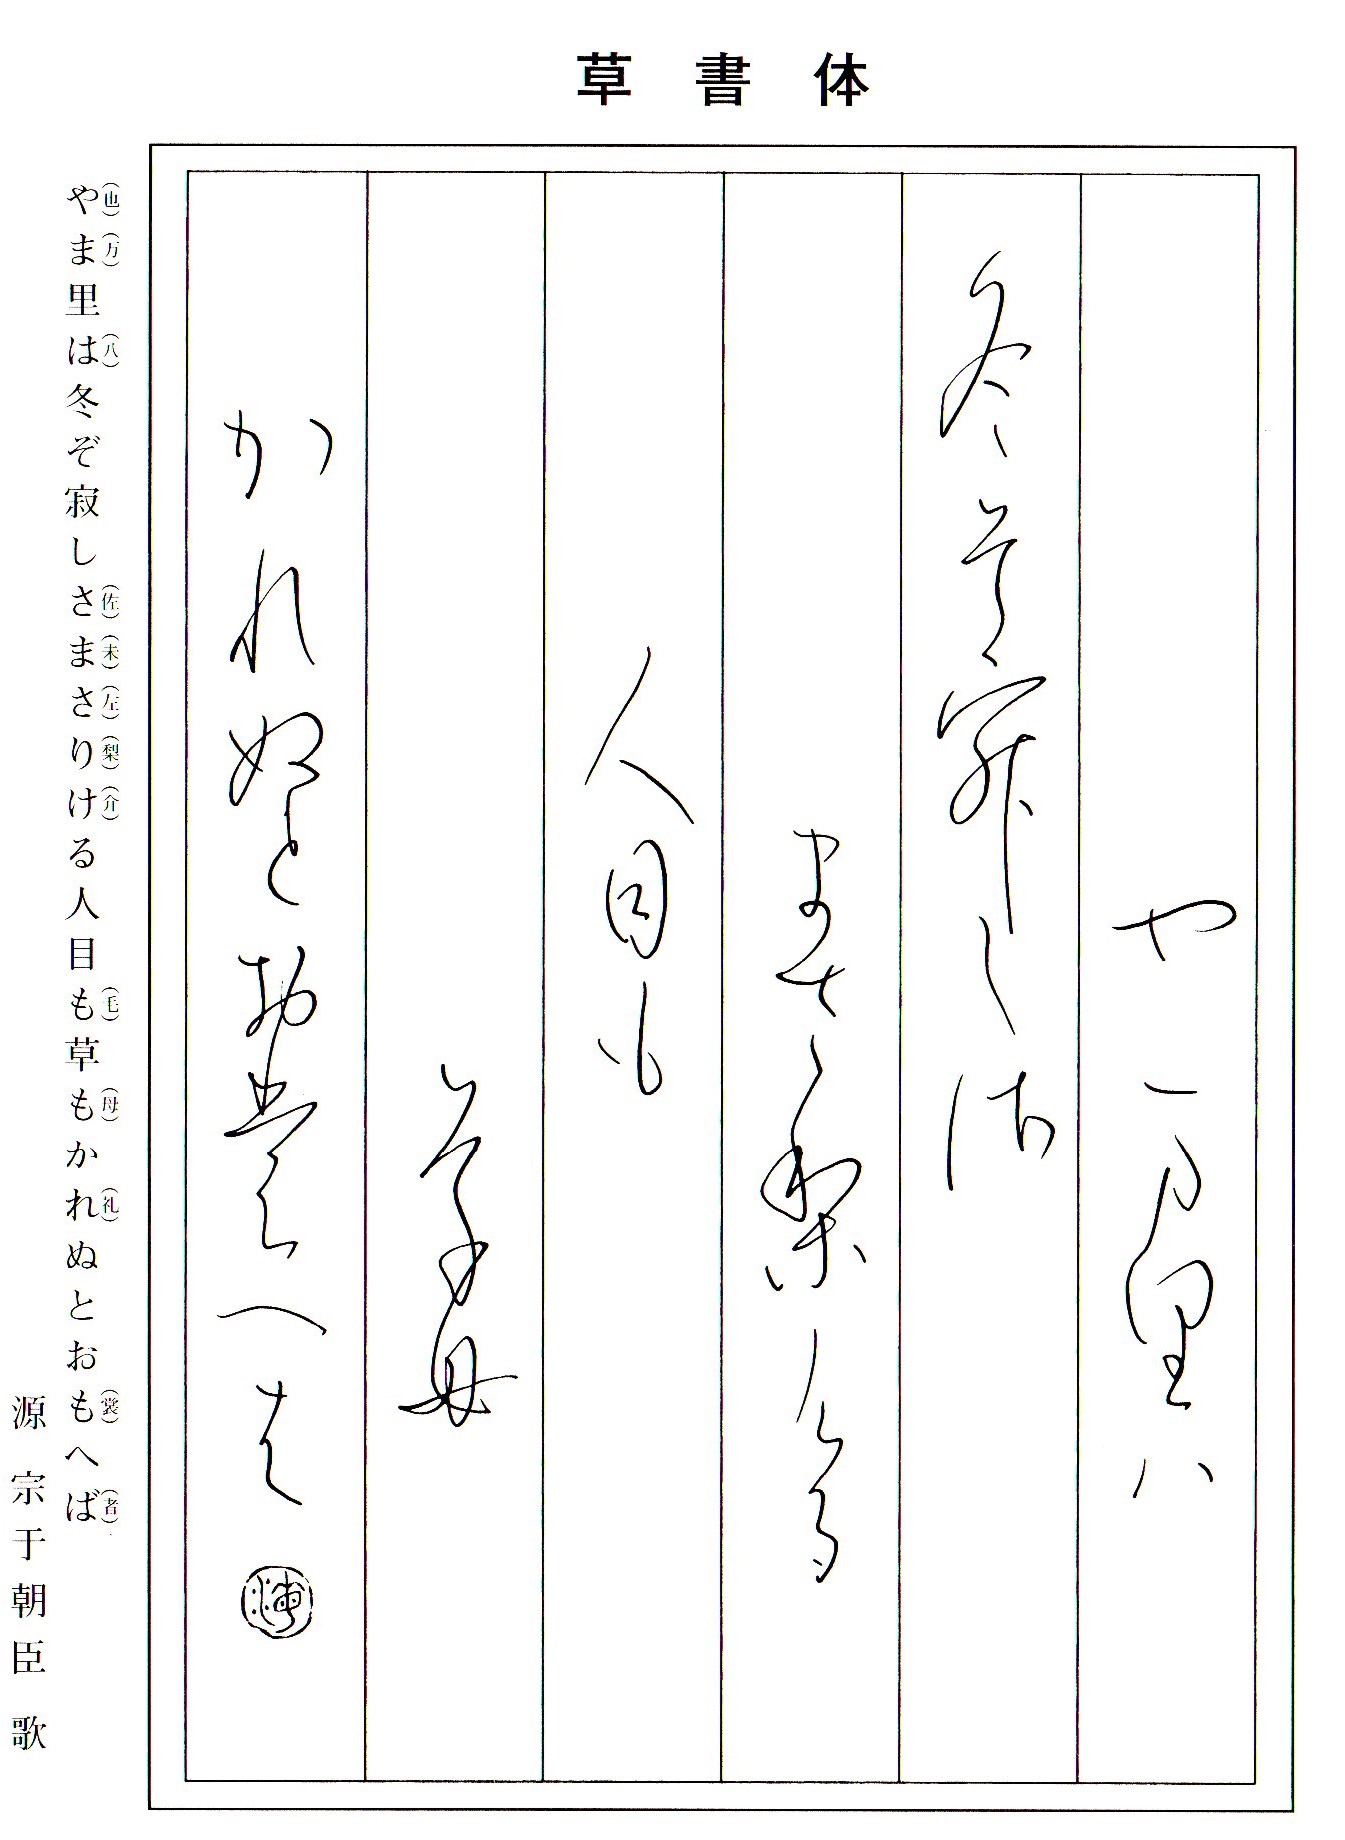 草書体
也万里八
冬そ寂し佐
未左梨介る
人目毛
草母
か礼ぬとお裳へ者
(也)(万)(八)(佐)(未)(左)(梨)(介)(毛)(母)(礼)(裳)(者)
やま里は冬ぞ寂しさまさりける人目も草もかれぬとおもへば
源宗于朝臣歌